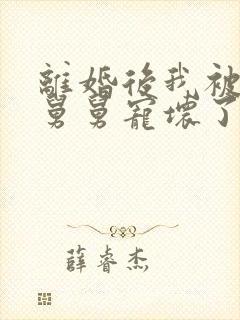 離婚後我被
舅舅寵壞了
薛睿杰